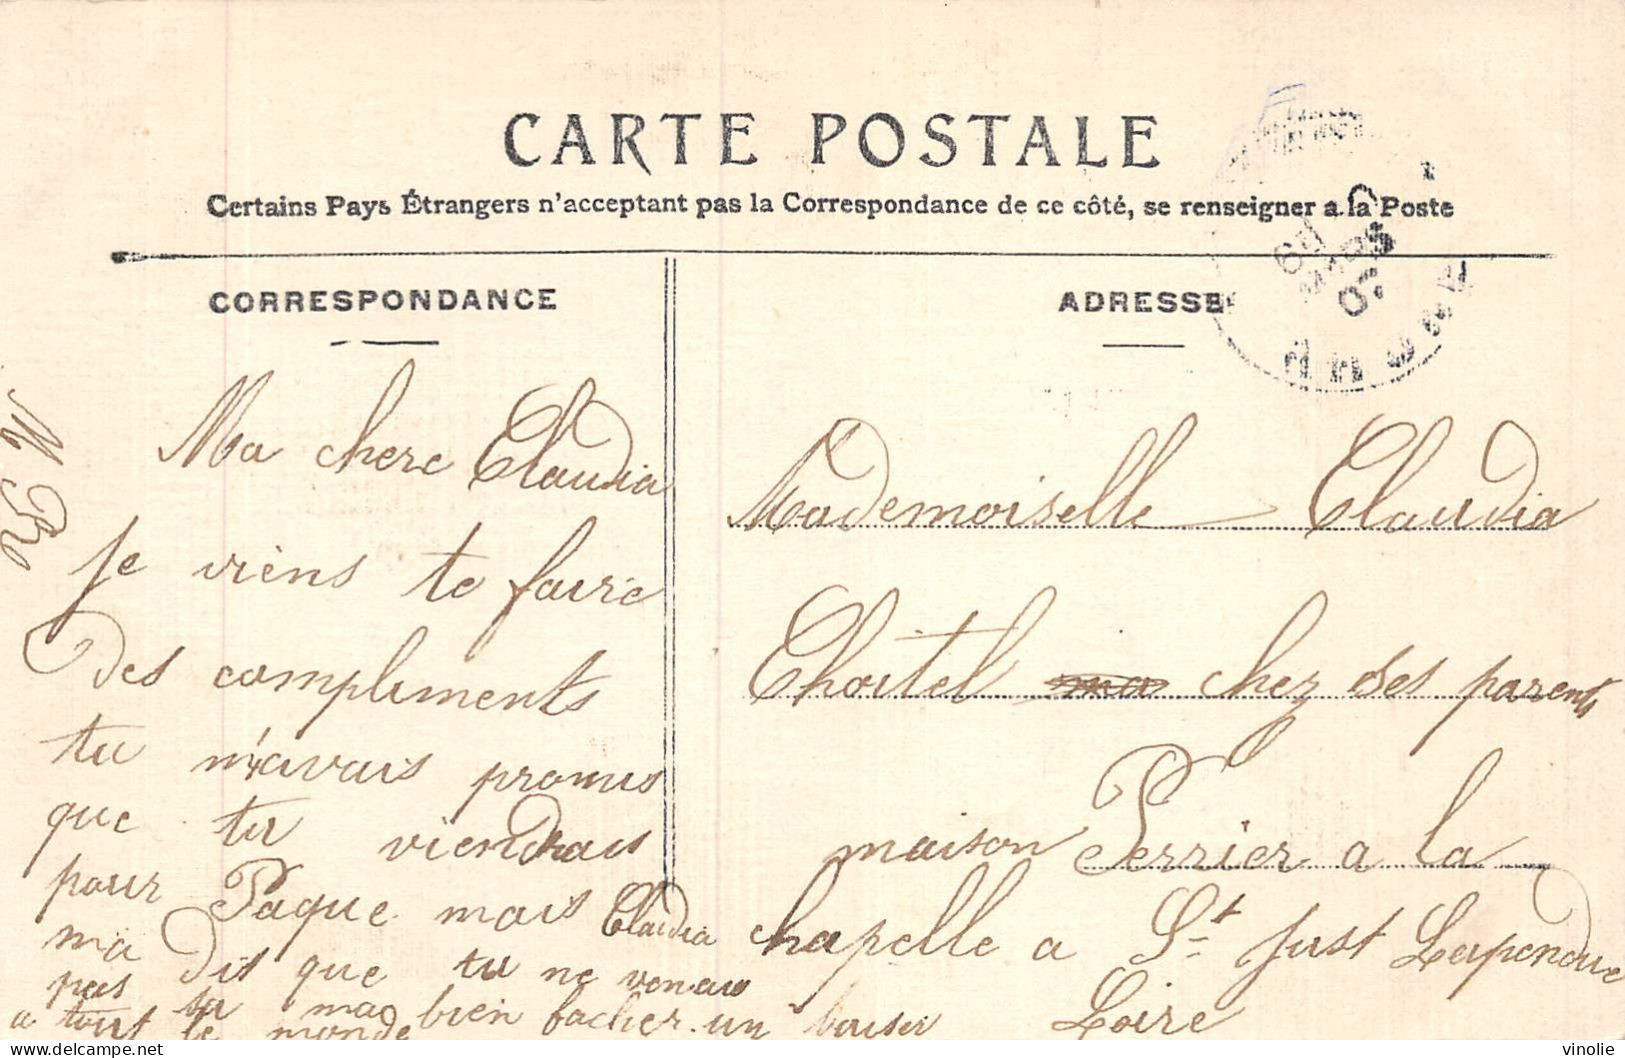 CARTE POSTALE
Certains Pays Étrangers n'acceptant pas la Correspondance de ce côté, se renseigner a la Poste
CORRESPONDANCE
Ma chere Claudia
je viens te faire
des compliments
tu m'avais promis
que tu viendrais
pour Paque mais Claudia
ma dit que tu ne venais
pas tu ma bien facher un baiser
a tout le monde
ADRESSE
Mademoiselle Claudia
Choitel chez ses parents
maison Perrier a la
chapelle a St Just Lapendue
Loire
vinolie